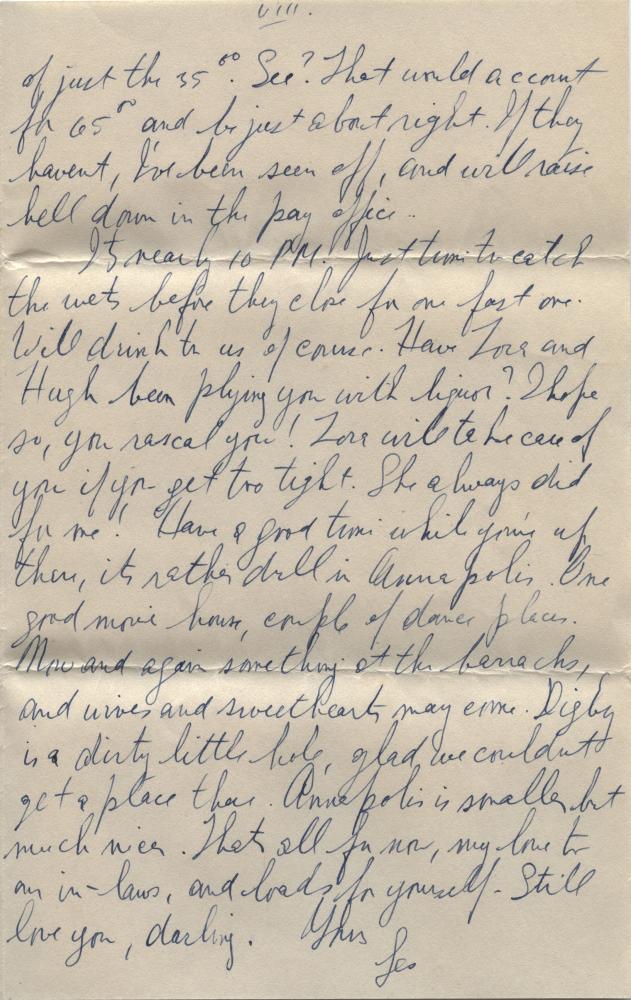 VIII.
of just the 35⁰⁰. See? That would account
for 65⁰⁰ and be just about right. If they
havent, I've been seen off, and will raise
hell down in the pay office..
Its nearly 10 PM. Just time to catch
the wets before they close for one fast one.
Will drink to us of course. Have Zora and
Hugh been plying you with liquor? I hope
so, you rascal you! Zora will take care of
you if you get too tight. She always did
for me! Have a good time while you're up
there, its rather dull in Annapolis. One
good movie house, couple of dance places.
Now and again something at the barracks,
and wives and sweethearts may come. Digby
is a dirty little hole, glad we couldn't
get a place there. Annapolis is smaller but
much nicer. Thats all for now, my love to
our in-laws, and loads for yourself. Still
love you, darling. Yours
Les